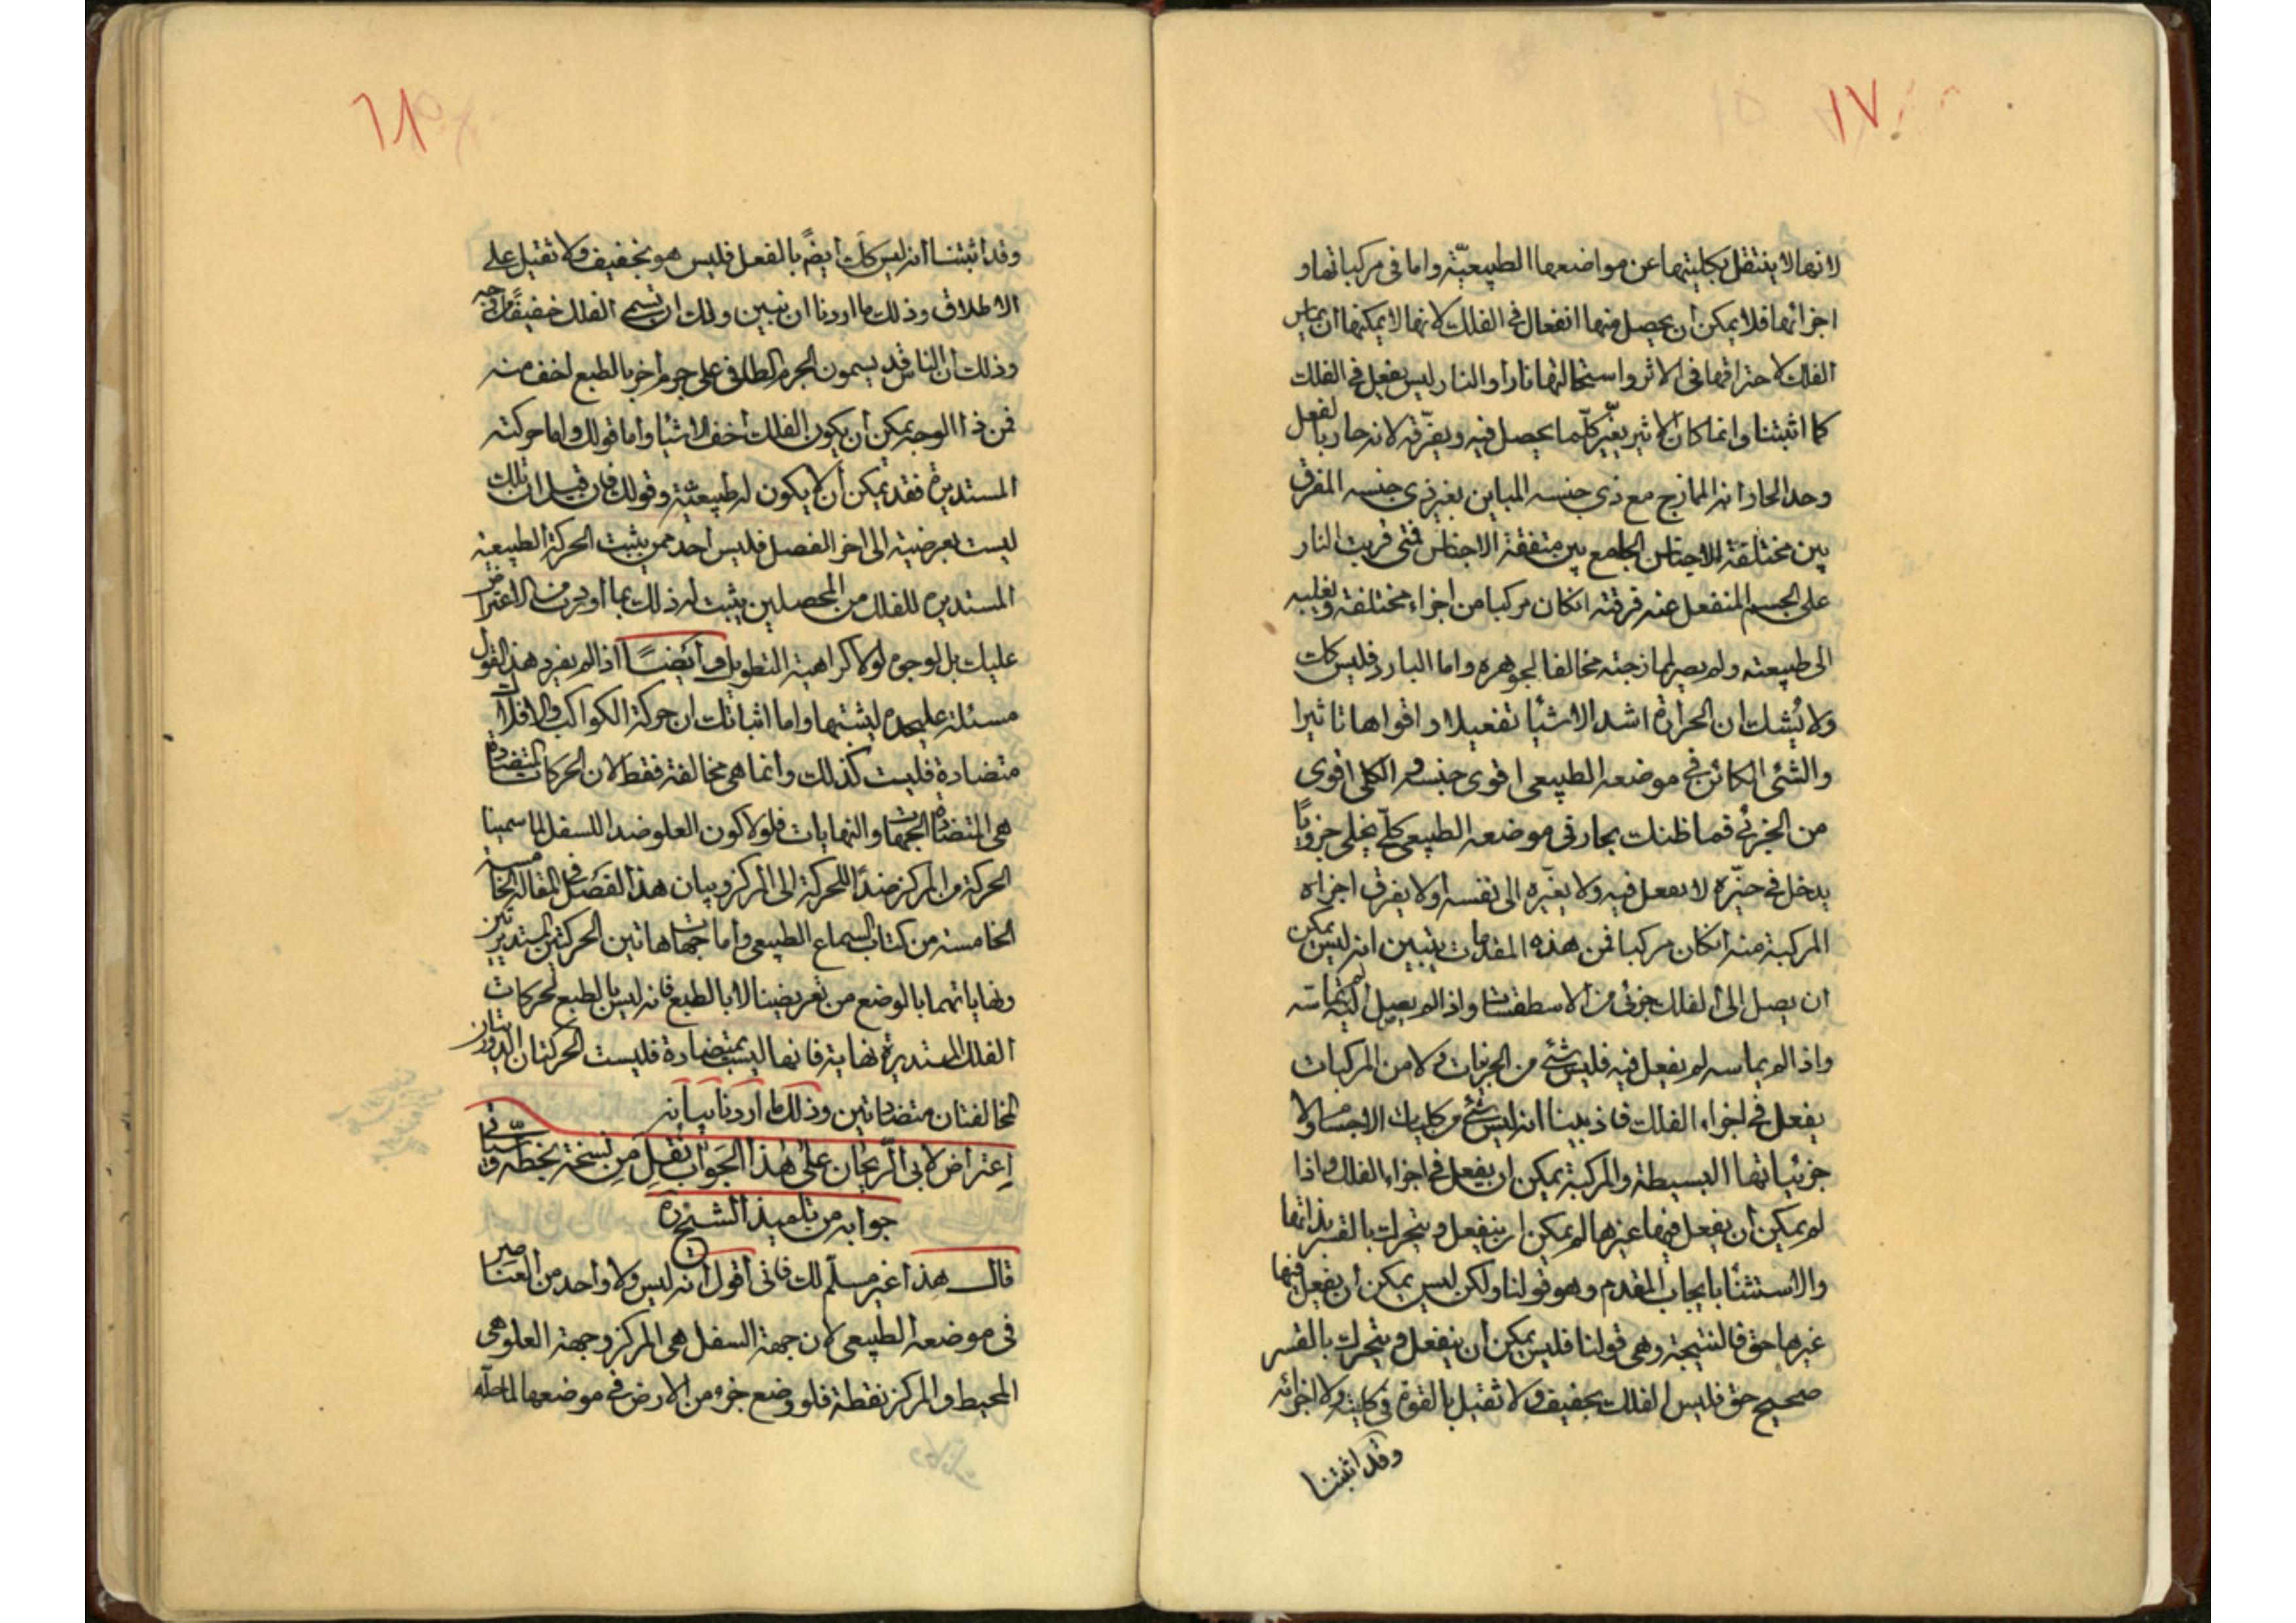 ١٧
لانها لا ينتقل بكليتها عن مواضعها الطبيعيّة واما في مركباتها و
اجزائها فلا يمكن أن يحصل منها انفعال في الفلك لانها لا يمكنها ان يماس
الفلك لاحتراقها في الاثر واستحالتها نارا والنار ليس يفعل في الفلك
كما اثبتنا وانما كان الاثير يغيّر كلّما يحصل فيه ويفرّقه لانه حار بالفعل
وحد الحار انه الممازج مع ذي جنسه المباين بغير ذي جنسه المفرق
بين مختلفة الاجناس الجامع بين متفقة الاجناس فمتى قربت النار
على الجسم المنفعل عنه فرقته انكان مركبا من اجزاء مختلفة وتغلبه
الى طبيعته ولم يصر لممازجته مخالفا لجوهره واما البارد فليس كك
ولا يُشك ان الحرارة اشد الاشيا تفعيلا واقواها تاثيرا
والشئ الكائن في موضعه الطبيعي اقوى جنسه والكلى اقوى
من الجزئي فما ظنك بحار في موضعه الطبيعي كلّي يخلى جزويًا
يدخل في حيّزه لا يفعل فيه ولا يغيّره الى نفسه أو لا يفرق اجزاه
المركبة منه انكان مركبا فمن هذه المقدمات يتبين انه ليس يمكن
ان يصل إلى الفلك جزئي من الاسطقسات واذا لم يصل اليه لم يماسه
واذا لم يماسه لم يفعل فيه فليس شئ من الجزيات ولا من المركبات
يفعل في اجزاء الفلك فاذ بينا انه ليس شئ من كليات الاجسام ولا
جزئياتها البسيطة والمركبة يمكن ان يفعل في اجزاء الفلك واذا
لم يمكن أن يفعل فيها غيرها لم يمكن ان ينفعل ويتحرك بالقسر بذاتها
والاستثنا بايجاب المقدم وهو قولنا ولكن ليس يمكن أن يفعل فيها
غيرها حق فالنتيجة وهي قولنا فليس يمكن أن ينفعل ويتحرك بالقسر
صحيح حق فليس الفلك بخفيف ولا ثقيل بالقوة في كليته ولا اجزائه
وقد اثبتنا
١٨
وقد اثبتنا انه ليس كك أيضًا بالفعل فليس هو بخفيف ولا ثقيل على
الاطلاق وذلك ما اردنا ان نبين ولك ان تسمي الفلك خفيفًا من وجه
وذلك أن الناس قد يسمون الجرم الطافي على جرم آخر بالطبع اخف منه
فمن ذا الوجه يمكن أن يكون الفلك أخف الاشيا وأما قولك واما حركته
المستديرة فقد يمكن أن لا يكون له طبيعيّة وقولك فان قيل ان تلك
ليست بعرضية الى اخر الفصل فليس أحد ممن يثبت الحركة الطبيعية
المستديره للفلك من المحصلين يثبت له ذلك بما اوردت من الاعتراض
عليك بل لوجوه لولا كراهية التطويل و أيضًا اذا لم يفرد هذا القول
مسئلة عليحده ليثبتها واما اثباتك ان حركة الكواكب والافلاك
متضادة فليست كذلك وانما هي مخالفة فقط لان الحركات المتضادة
هي المتضادة الجهات والنهايات فلولا كون العلو ضدا للسفل لما سمينا
الحركة من المركز ضدًا للحركة إلى المركز وبيان هذا الفصل في المقالة الخامسة
الخامسة من كتاب السماع الطبيعي وأما جهات هاتين الحركتين المستديرتين
ونهاياتهما بالوضع من تعريضنا لا بالطبع فانه ليس بالطبع لحركات
الفلك المستديرة نهاية فانها ليست بمتضادة فليست الحركتان الدوريتان
المخالفتان متضادتين وذلك ما اردنا بيانه
اعتراض لابي الريحان على هذا الجواب نقل من نسخة بخطه وسياتي
جوابه من تلميذ الشيخ ره
قال هذا غير مسلّم لك فاني أقول انه ليس ولا واحد من العناصر
في موضعه الطبيعي لان جهة السفل هي المركز وجهة العلو هي
المحيط والمركز نقطة فلو وضع جزء من الارض في موضعها لما حلّه